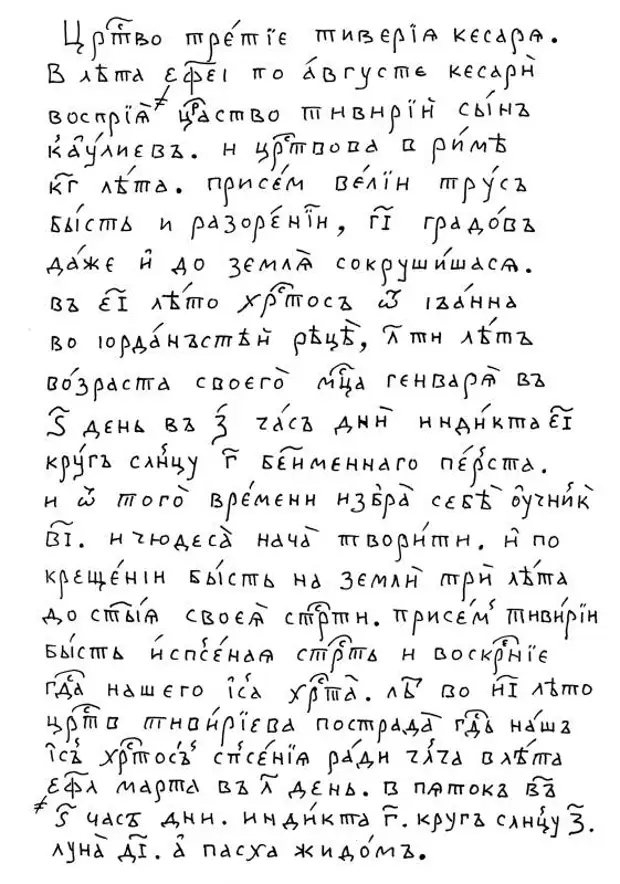 Цр҃тⷭ҇во тре́тїе тиверїѧ кесарѧ.
В лѣ́та ҂є҃фєі по а́вгустє кесарѝ
воспрїѧ̀ црⷭ҇аство тивирїи̑ сы́нъ
каꙋ́лиевъ. и црⷭ҇твова в ри́мѣ
к҃г лѣ́та. присе́м ве́лїи тру́съ
бы́сть и разоре́нїи, г҃і градо́въ
да́же и҆̀ до землѧ̀ сокруши́шасѧ.
въ є҃і лѣ́то хрⷭ҇тосъ ѿ іѡа́нна
во іѻрда́нъстѣй рѣцѣ̀, л҃ ти лѣ́тъ
во́зраста своегѡ̀ мцⷭ҇а генварѧ̀ въ
ѕ҃ день въ з҃ ча́съ днѝ инди́кта є҃і
кру́гъ слн҃цу г҃ без̾именнаго пе́рста.
и ѿ тогѡ̀ вре́мени избра̀ себѣ̀ ᲂу҆чн҃к̀
в҃і. и чюдеса̀ нача̀ твори́ти. и҆ по
креще́нїи бы́сть на землѝ трѝ лѣ́та
до ст҃ы́ѧ своеѧ̀ стрⷭ҇ти. присе́м тиви́рїи
бы́сть и҆спⷭ҇е́ная стрⷭ҇ть и воскрⷭ҇нїе
гдⷭ҇а нашего і҆с҃а хрⷭ҇та̀. лѣ̀ во и҃і лѣто
црⷭ҇тв тиви́рїева пострада̀ гдⷭ҇ь на́шъ
і҆с҃ъ хрⷭ҇тосъ сп҃се́нїѧ ра́ди члч҃а в лѣ́та
҂єф҃л ма́рта въ л҃ день. в пѧто́къ въ
ѕ҃ часъ дни. инди́кта г҃. кругъ слн҃цу з҃.
луна̀ д҃і. а҆ пасха жидо́мъ.